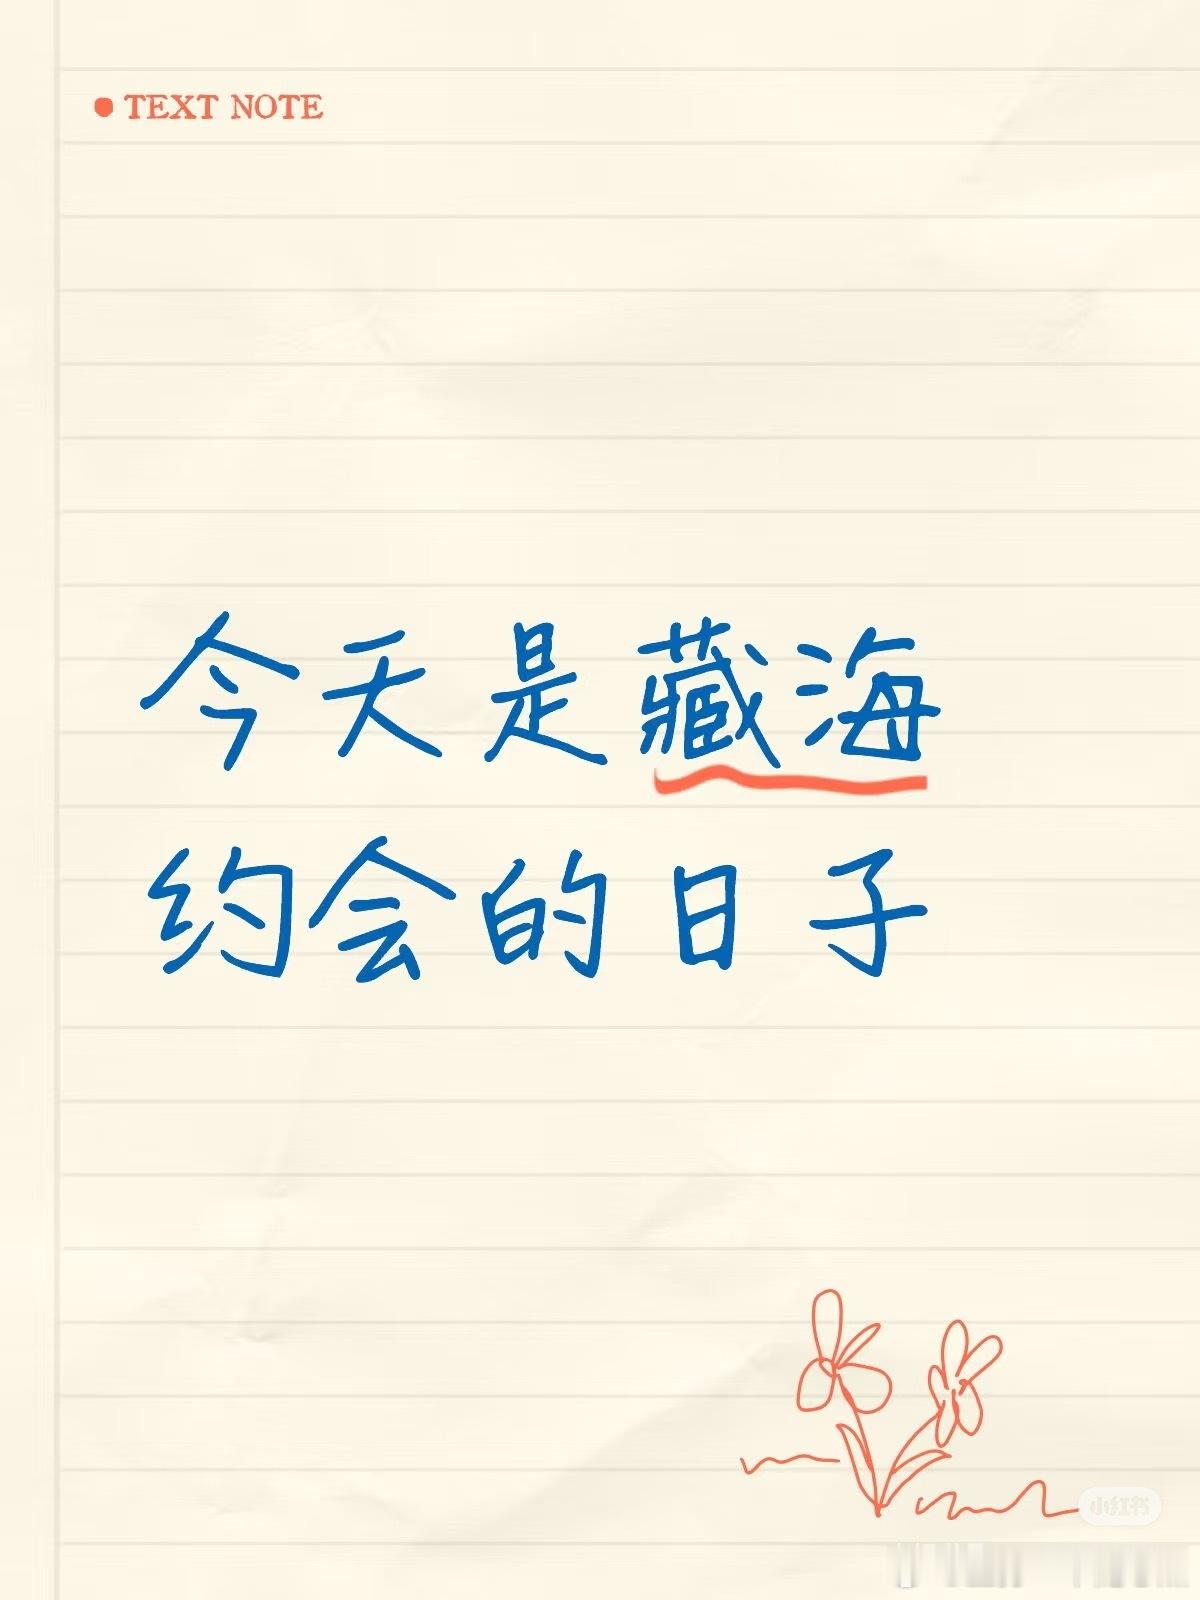 TEXT NOTE
今天是藏海
约会的日子
小红书